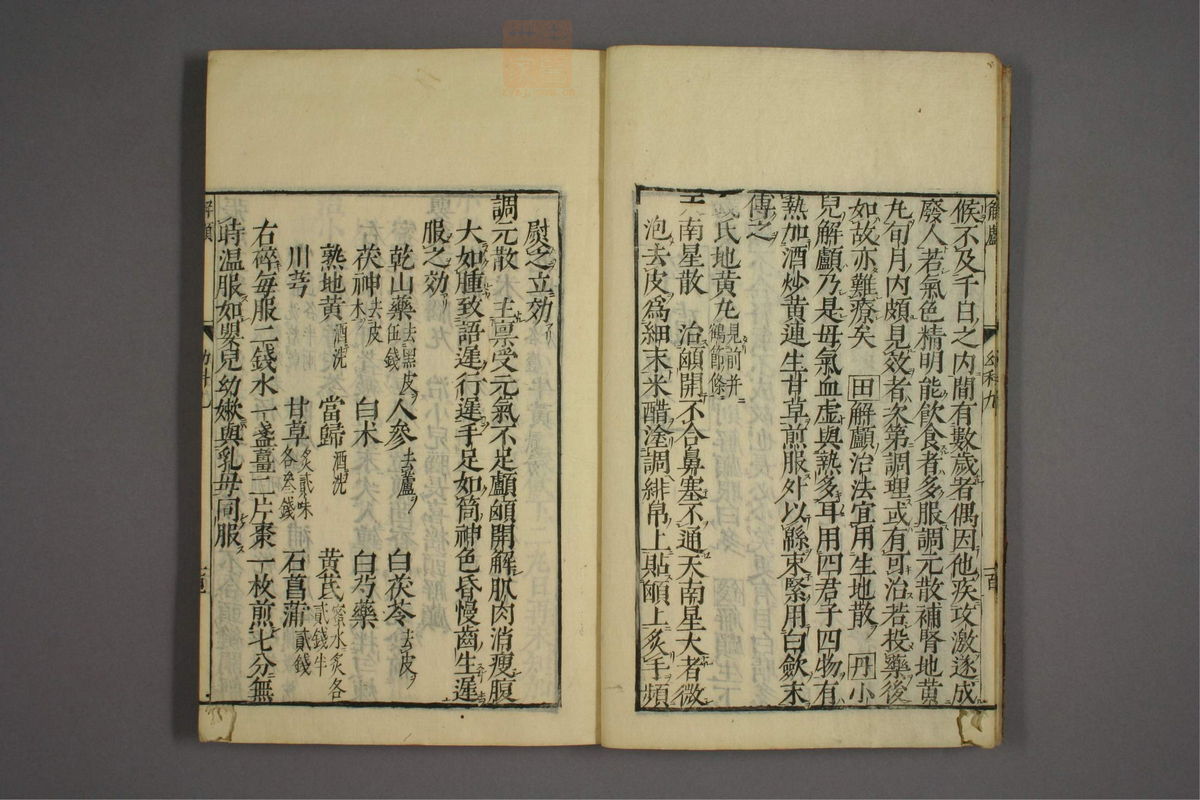 解顱
幼科九
候不及千日之内間有數歲者偶因他疾攻激遂成
廢人若氣色精明能飲食者多服調元散補腎地黃
丸旬月内頗見效者次第調理或有可治若投藥後
如故亦難療矣 田解顱治法宜用生地散 丹小
兒解顱乃是母氣血虚與熱多耳用四君子四物有
熱加酒炒黃連生甘草煎服外以緜束緊用白歛末
傅之
氏地黃丸見前并
鶴節條
天南星散 治顖開不合鼻塞不通天南星大者微
泡去皮爲細末米醋塗調緋帛上貼顖上炙手頻
熨之立効
調元散 主禀受元氣不足顱顖開解肌肉消瘦腹
大如腫致語遲行遲手足如筒神色昏慢齒生遲
服之効
乾山藥去黑皮
伍錢 人參去蘆 白茯苓去皮
茯神去皮
木 白术 白芍藥
熟地黃酒洗 當歸酒洗 黃茋蜜水炙各
貳錢半
川芎 甘草炙貳味
各叁錢 石菖蒲貳錢
右碎每服二錢水一盞薑二片棗一枚煎七分無
時温服如嬰兒幼嫩與乳母同服